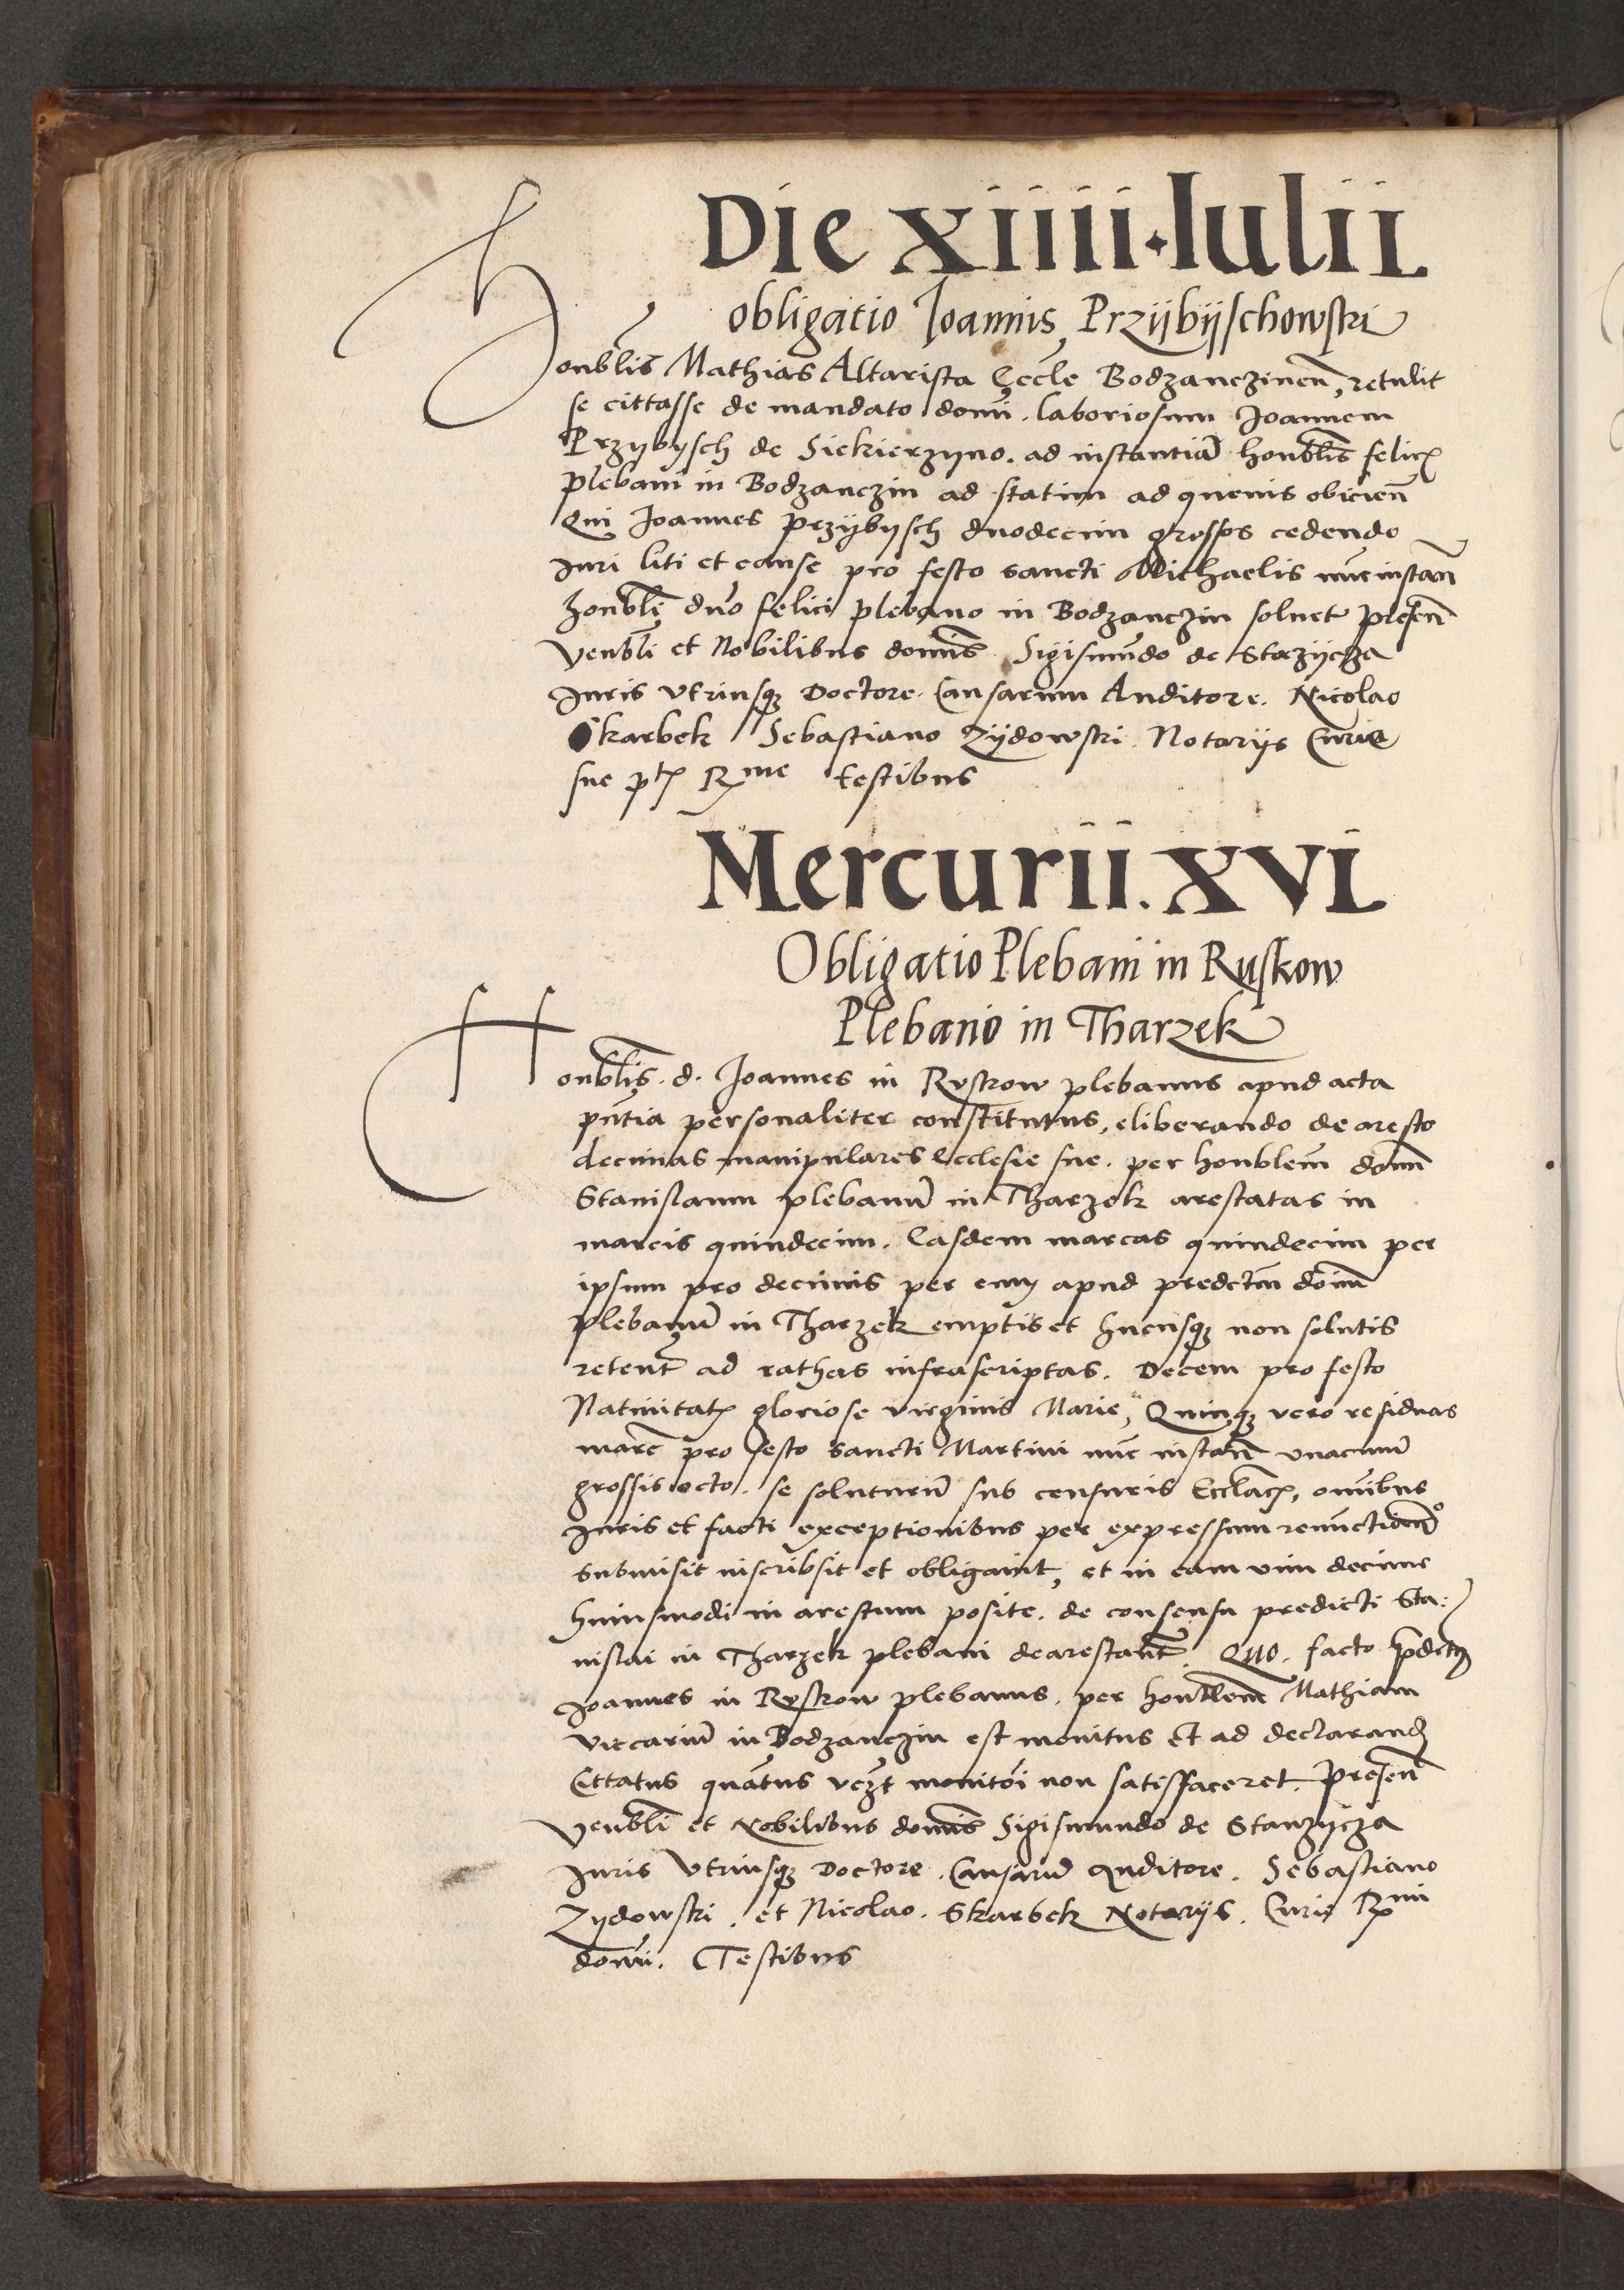 Die xiiii Iulii
obligatio Joannis Przijbijschowski
Honblis Mathias Altarista Eccle Bodzanczinen, retulit
se cittasse de mandato domi. laboriosum Joannem
Przybysch de Siekierzyno. ad instantia honblis felic
plebani in Bodzanczin ad statim ad quevis obicien
Qui Joannes przybysch duodecim grossos cedendo
Juri liti et cause pro festo sancti Michaelis nuc instan
honbli dno felici plebano in Bodzanczin solvet presen
Venbli et Nobilibus domis Sigismundo de Stezijcza
Juris Utriusq Doctore. Causarum Auditore. Nicolao
Skarbek Sebastiano Zijdowski. Notarijs Curie
sue pt Rme testibus
Mercurii. xvi
Obligatio Plebani in Ruskow
Plebano in Tharzek
Honblis. d. Joannes in Ruskow plebanus apud acta
pntia personaliter constitutus, eliberando de aresto
decimas manipulares Ecclesie sue. per honblem domi
Stanislaum plebanu in Tharzek arestatas in
marcis quindecim. Easdem marcas quindecim per
ipsum pro decimis per eum apud predctm domi
plebanu in Tharzek emptis et hucusq non solutis
retent ad rathas infrascriptas. Decem pro festo
Nativitat gloriose virginis Marie, Quinq vero residuas
marc pro festo sancti Martini nuc instan unacum
grossis octo. se soluturu sub censuris Ecclac, omibus
Juris et facti exceptionibus per expressum renuctiom
submisit inscribsit et obligavit, et in eam vim decime
huiusmodi in arestum posite. de consensu predicti Sta:
nislai in Tharzek plebani dearestant. Quo. facto pdctus
Joannes in Ruskow plebanus. per honblem Mathiam
viccariu in Bodzanczin est monitus et ad declarand
Cttatus quatus vezt monitoi non satisfaceret. Presen
Venbli et Nobilibus domis Sigismundo de Stanzycza
Juris Utriusq Doctore. Causaru Auditore. Sebastiano
Zydowski. et Nicolao. Skarbek Notarijs. Curie Rmi
domi. Testibus